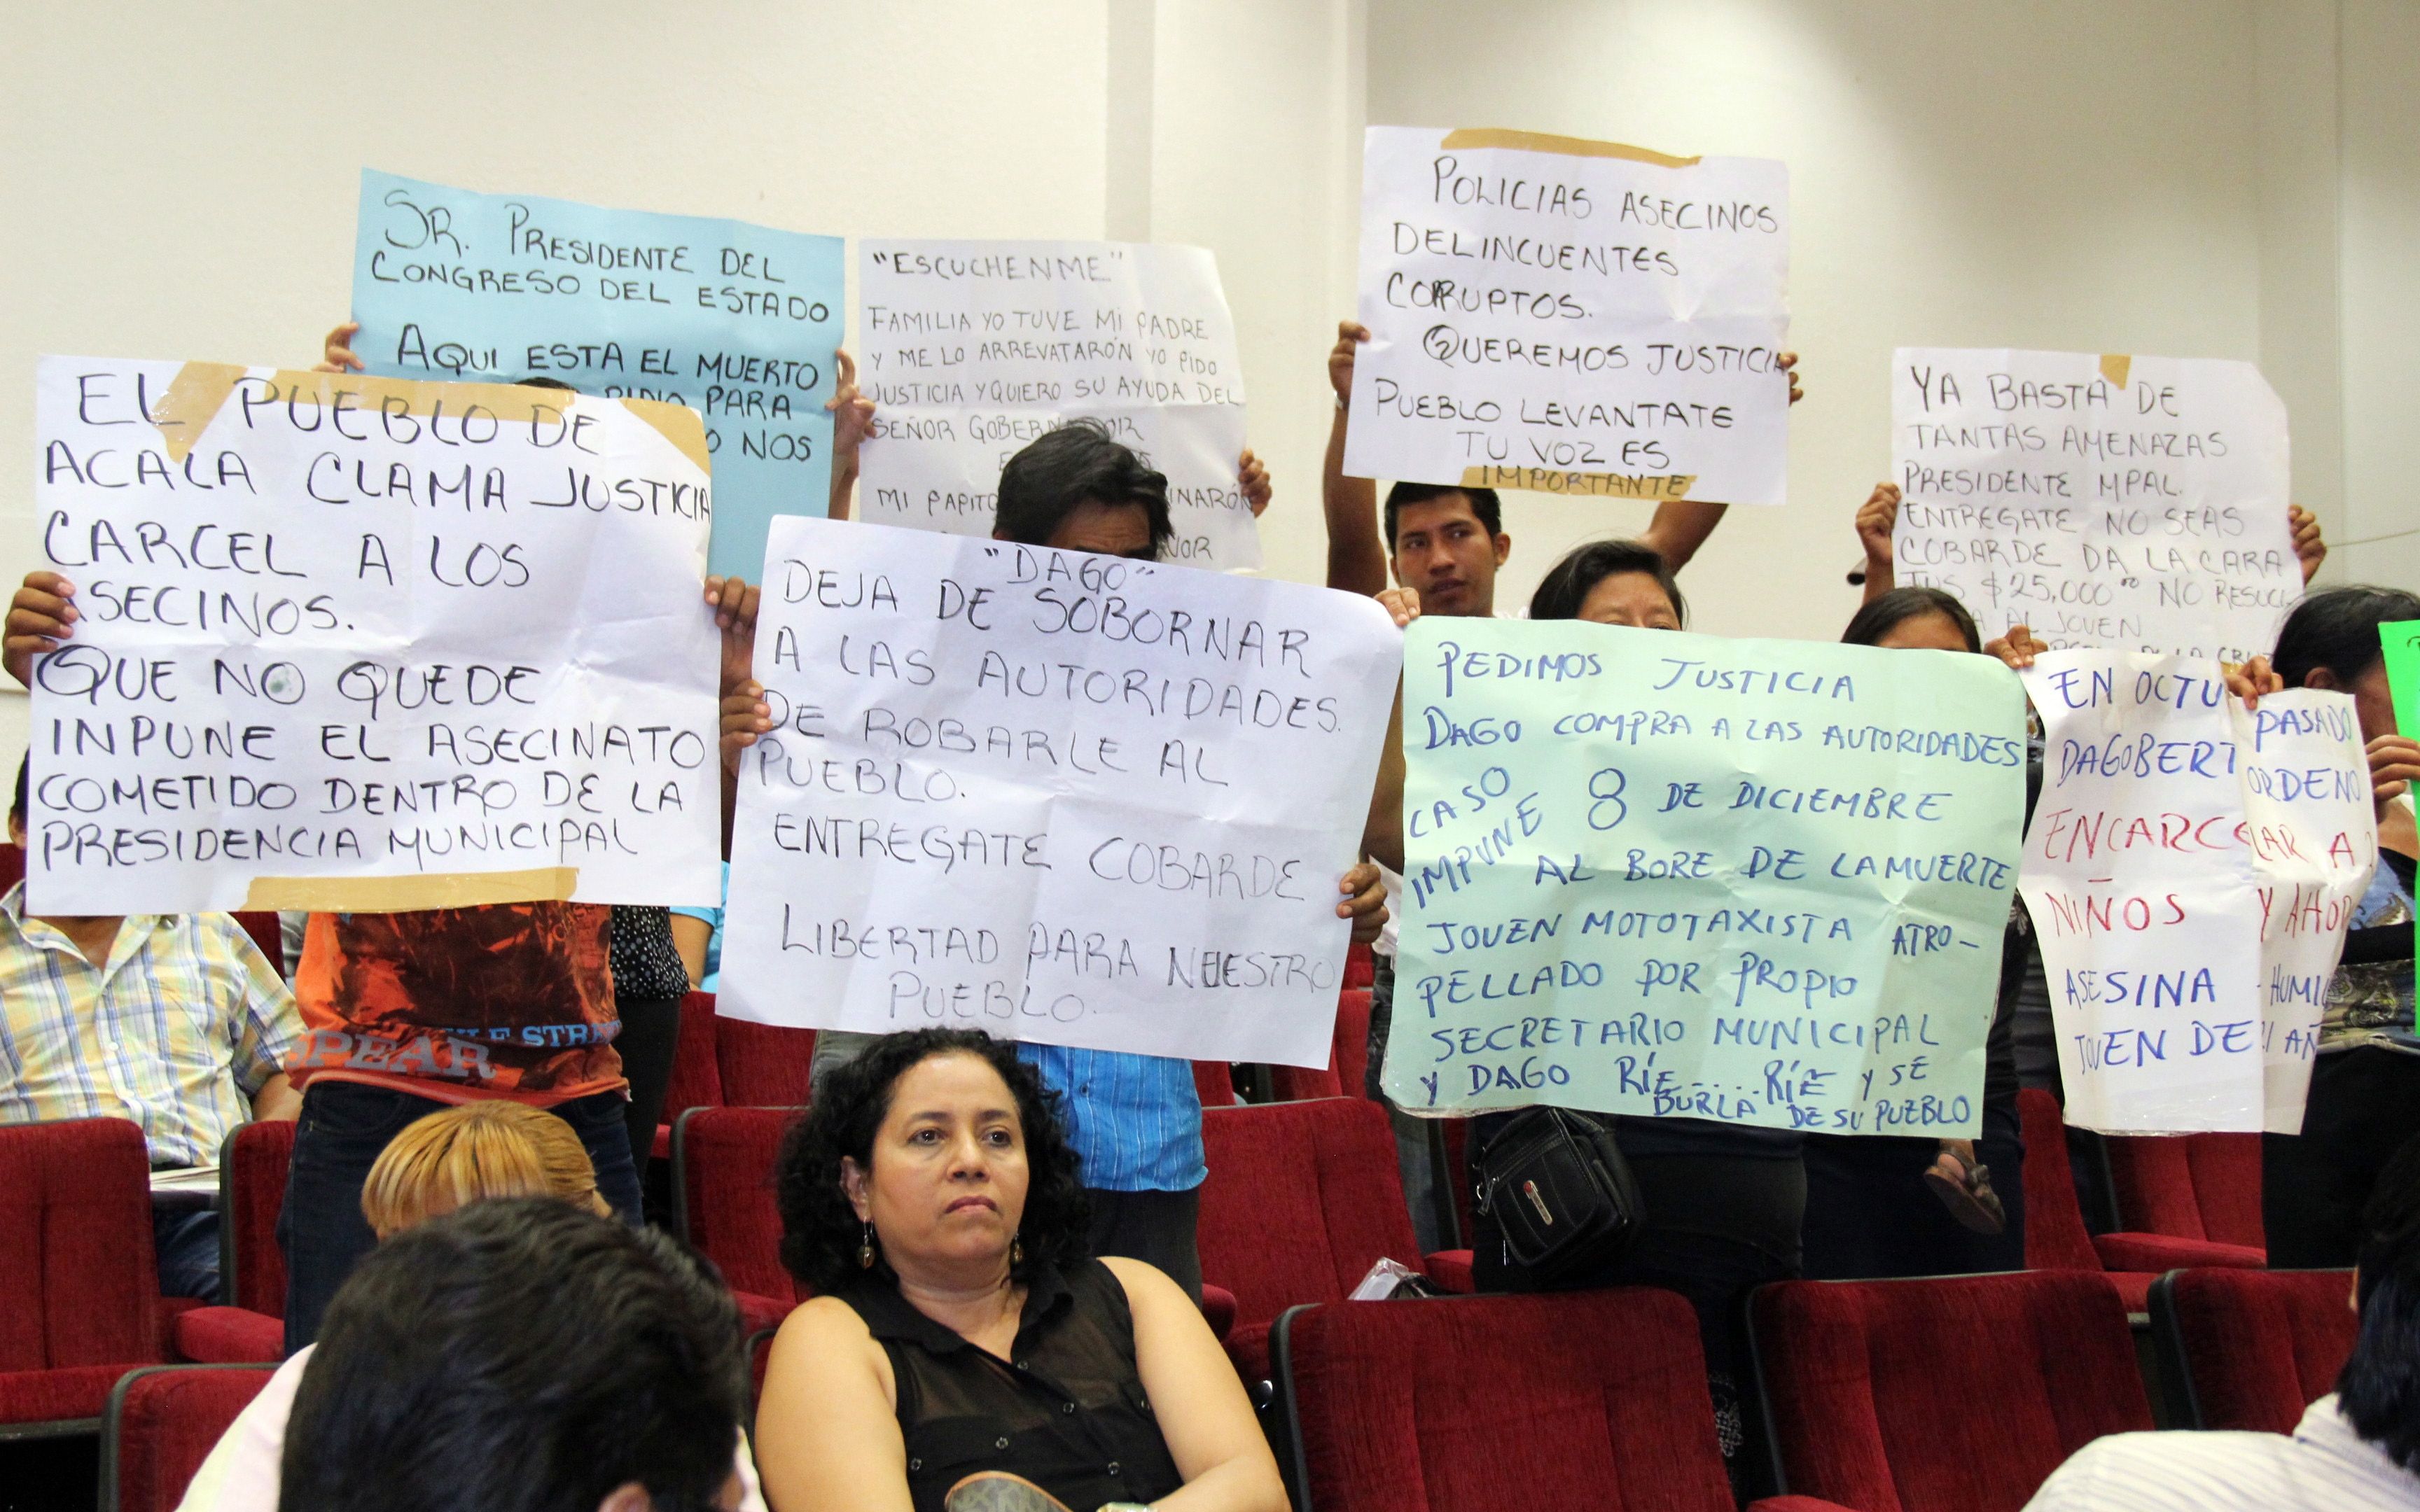 SR. PRESIDENTE DEL
CONGRESO DEL ESTADO
AQUI ESTA EL MUERTO
PARA
NOS
"ESCUCHENME"
FAMILIA YO TUVE MI PADRE
Y ME LO ARREVATARÓN YO PIDO
JUSTICIA Y QUIERO SU AYUDA DEL
SEÑOR
MI PAPITO
POLICIAS ASECINOS
DELINCUENTES
CORRUPTOS.
QUEREMOS JUSTICIA
PUEBLO LEVANTATE
TU VOZ ES
IMPORTANTE
YA BASTA DE
TANTAS AMENAZAS
PRESIDENTE MPAL.
ENTREGATE NO SEAS
COBARDE DA LA CARA
TUS $25,000°° NO
AL JOVEN
LA CRUZ
EL PUEBLO DE
ACALA CLAMA JUSTICIA
CARCEL A LOS
ASECINOS.
QUE NO QUEDE
INPUNE EL ASECINATO
COMETIDO DENTRO DE LA
PRESIDENCIA MUNICIPAL
"DAGO"
DEJA DE SOBORNAR
A LAS AUTORIDADES.
DE ROBARLE AL
PUEBLO.
ENTREGATE COBARDE
LIBERTAD PARA NUESTRO
PUEBLO.
PEDIMOS JUSTICIA
DAGO COMPRA A LAS AUTORIDADES
CASO IMPUNE
8 DE DICIEMBRE
AL BORE DE LA MUERTE
JOVEN MOTOTAXISTA ATRO-
PELLADO POR PROPIO
SECRETARIO MUNICIPAL
Y DAGO RÍE.....RÍE Y SE
BURLA DE SU PUEBLO
EN OCTU PASADO
DAGOBERT ORDENO
ENCARCELAR A
NIÑOS Y AHOR
ASESINA - HUMIL
JOVEN DE 21 AÑ
SPEAR